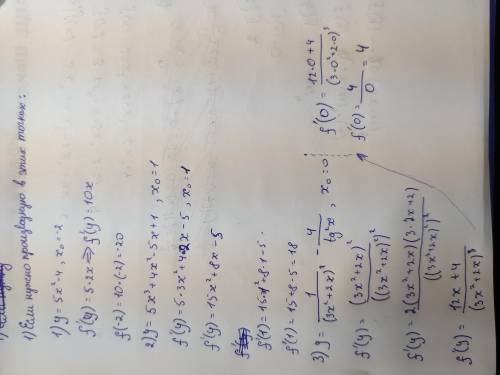 1) Если нужно производную в этих точках:
1) y = 5x²-4, x₀=-2
f'(y) = 5·2x => f'(y) = 10x
f(-2) = 10·(-2) = -20
2) y = 5x³+4x²-5x+1, x₀=1
f'(y) = 5·3x²+4·2x-5, x₀=1
f'(y) = 15x²+8x-5
f'(1) = 15·1²+8·1-5
f'(1) = 15+8-5=18
3) y = 1/(3x²+2x)² - 4/tg²x, x₀=0
f'(y) = (3x²+2x)²'/((3x²+2x)²)²
f'(y) = 2(3x²+2x)(3·2x+2)/((3x²+2x)²)²
f'(y) = 12x+4/(3x²+2x)³
f'(0) = 12·0+4/(3·0²+2·0)³
f'(0) = 4/0 = 4